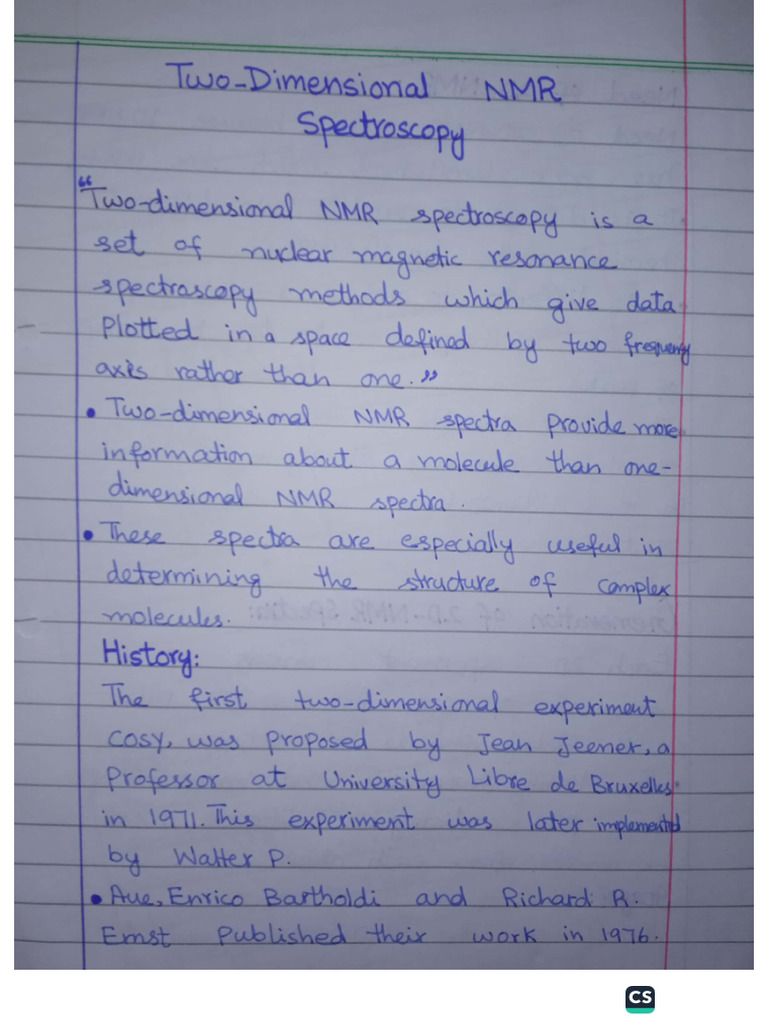 Two-Dimensional NMR
Spectroscopy
"Two-dimensional NMR spectroscopy is a
set of nuclear magnetic resonance
spectroscopy methods which give data
Plotted in a space defined by two frequency
axis rather than one."
• Two-dimensional NMR spectra Provide more
information about a molecule than one-
dimensional NMR spectra.
• These spectra are especially useful in
determining the structure of complex
molecules.
History:
The first two-dimensional experiment
COSY, was Proposed by Jean Jeener, a
Professor at University Libre de Bruxelles
in 1971. This experiment was later implemented
by Walter P.
• Aue, Enrico Bartholdi and Richard R.
Ernst Published their work in 1976.
CS